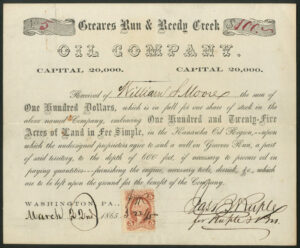 5 Greaves Run & Reedy Creek $100
OIL COMPANY.
CAPITAL 20,000. CAPITAL 20,000.
Received of William S. Moore the sum of
One Hundred Dollars, which is in full for one share of stock in the
above named Company, embracing One Hundred and Twenty-Five
Acres of Land in Fee Simple, in the Kanawha Oil Region,—upon
which the undersigned proprietors agree to sink a well on Greaves Run, a part
of said territory, to the depth of 600 feet, if necessary to procure oil in
paying quantities—furnishing the engine, necessary tools, derrick, &c., which
are to be left upon the ground for the benefit of the Company.
WASHINGTON, PA.,
March 22nd 1865.
for Ruple & Son